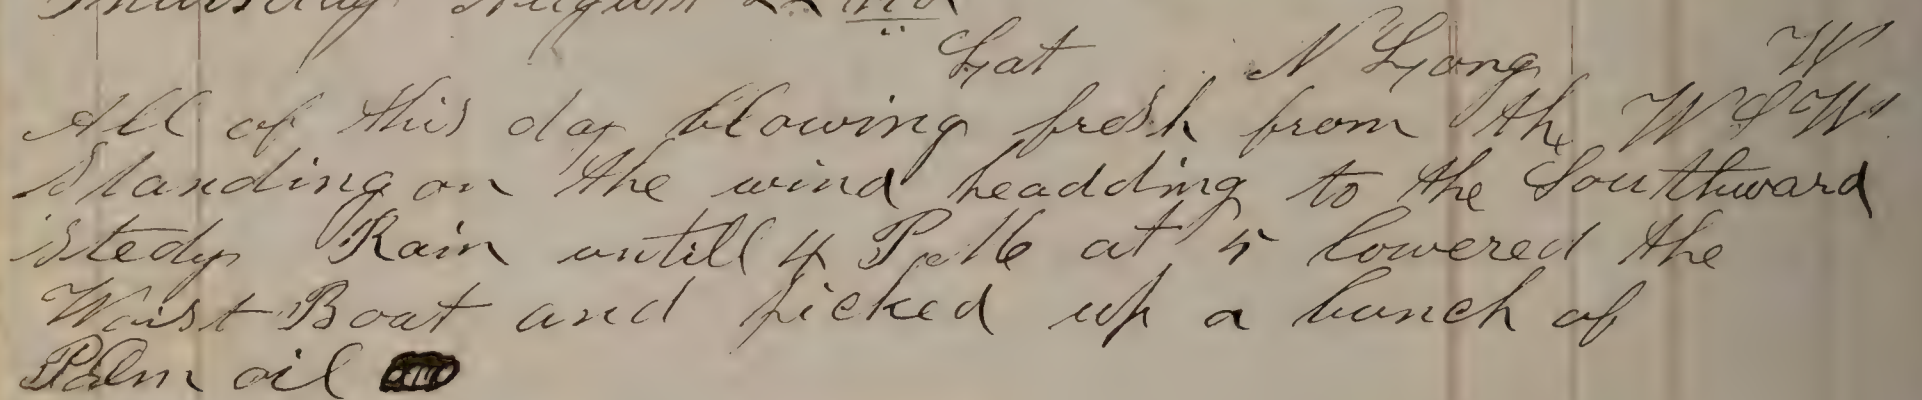 Thursday August 22nd
Lat N Long W
All of this day blowing fresh from the WSW
Standing on the wind headding to the Southward
Stedy Rain untill 4 P.M at 5 lowered the
Waist Boat and picked up a bunch of
Palm oil